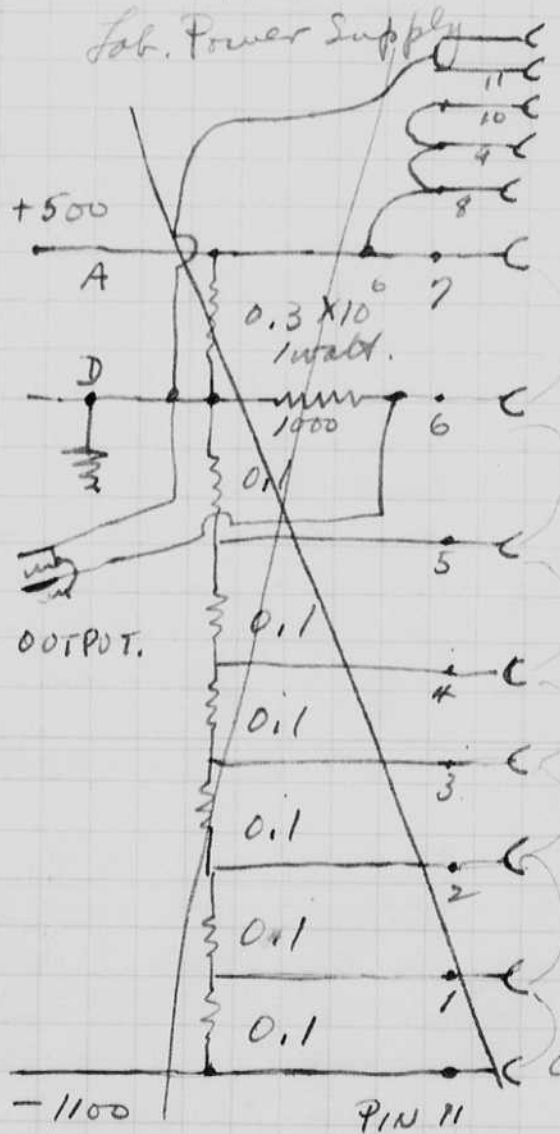 Lab. Power Supply
11
10
9
8
+500
A
6 7
0.3 X10
1 watt.
D
1000
6
0.1
5
OUTPUT.
0.1
4
0.1
3
0.1
2
0.1
1
0.1
-1100
PIN 11